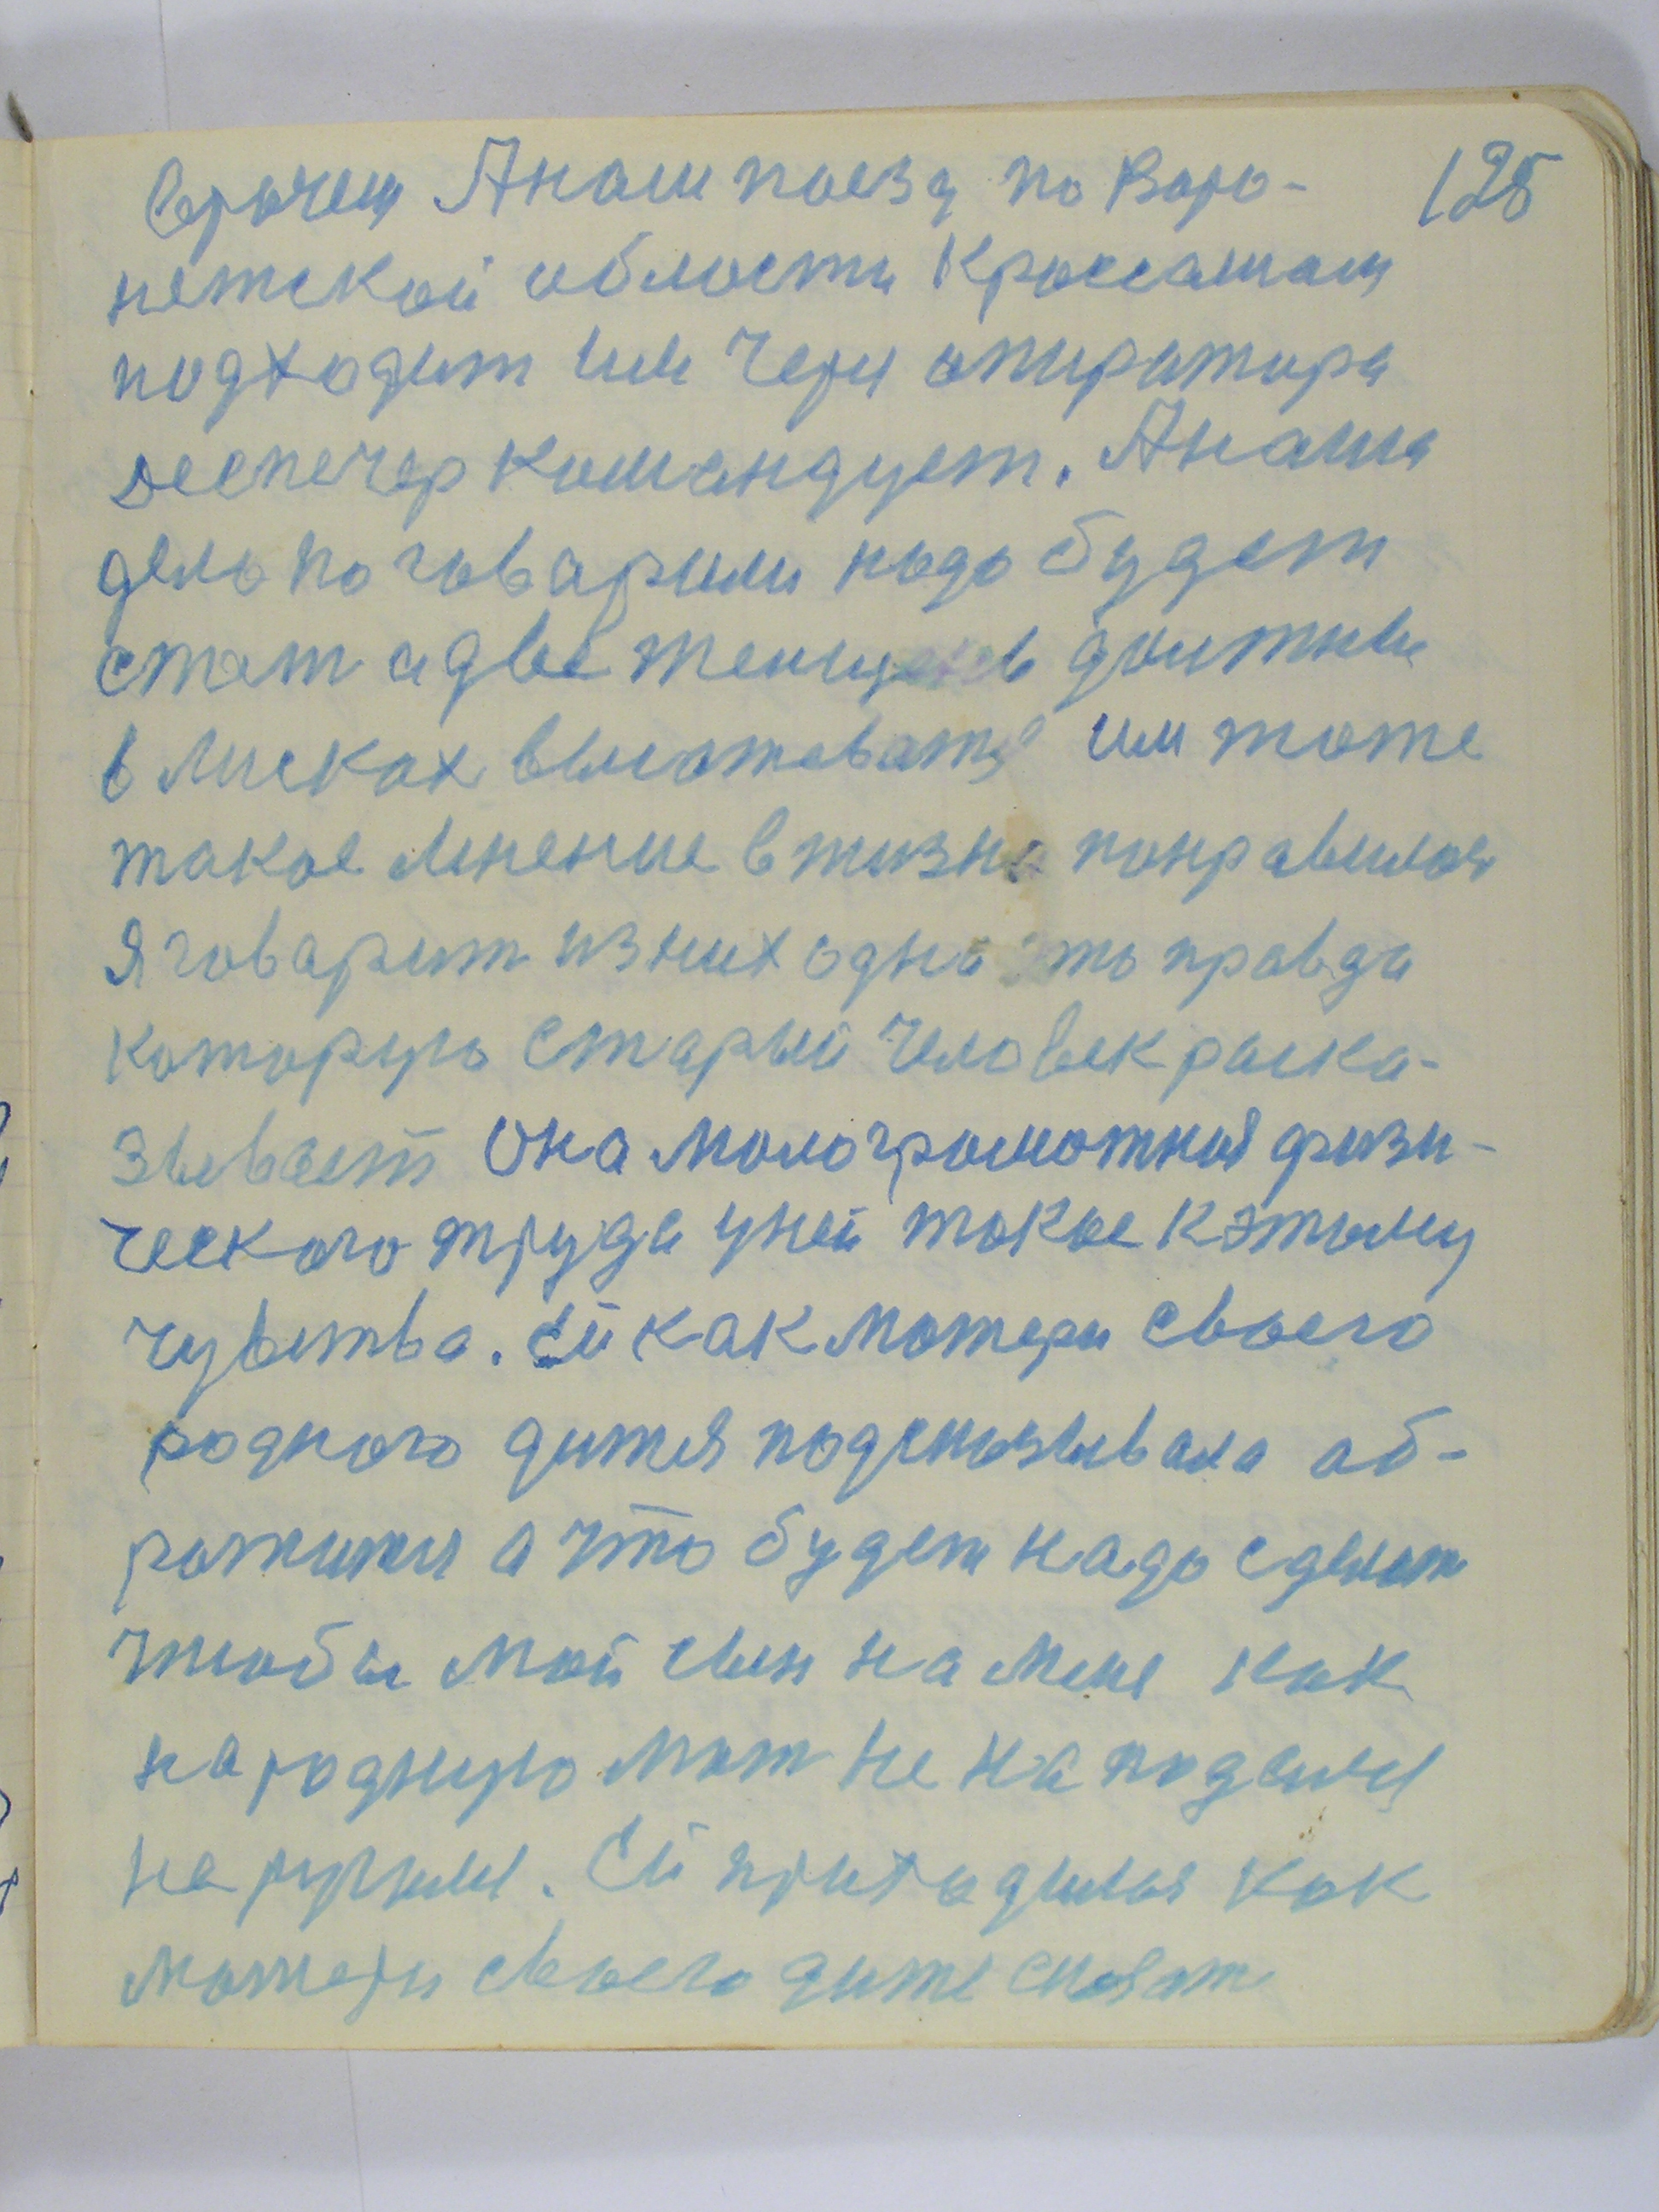 врачем Анаш поезд по Воро- 125
нежской области Кроссашам
подходит им через апиратора
деспечер командует. Анаша
дело поговарили надо будет
стат а две женщены должны
в Лисках высажеватз им тоже
такое мнение в жизни понравилося
я говарит из них одна это правда
которую старый человек раска-
зывает Она малограмотная физи-
ческого труда у ней такое к этому
чувства. Ей как матери своего
родного дитя подсказывала об-
ражатця а что будет надо сделат
чтобы мой сын на меня как
на родную мат не нападал
не ругался. Ей приходилося как
матери своего дитя